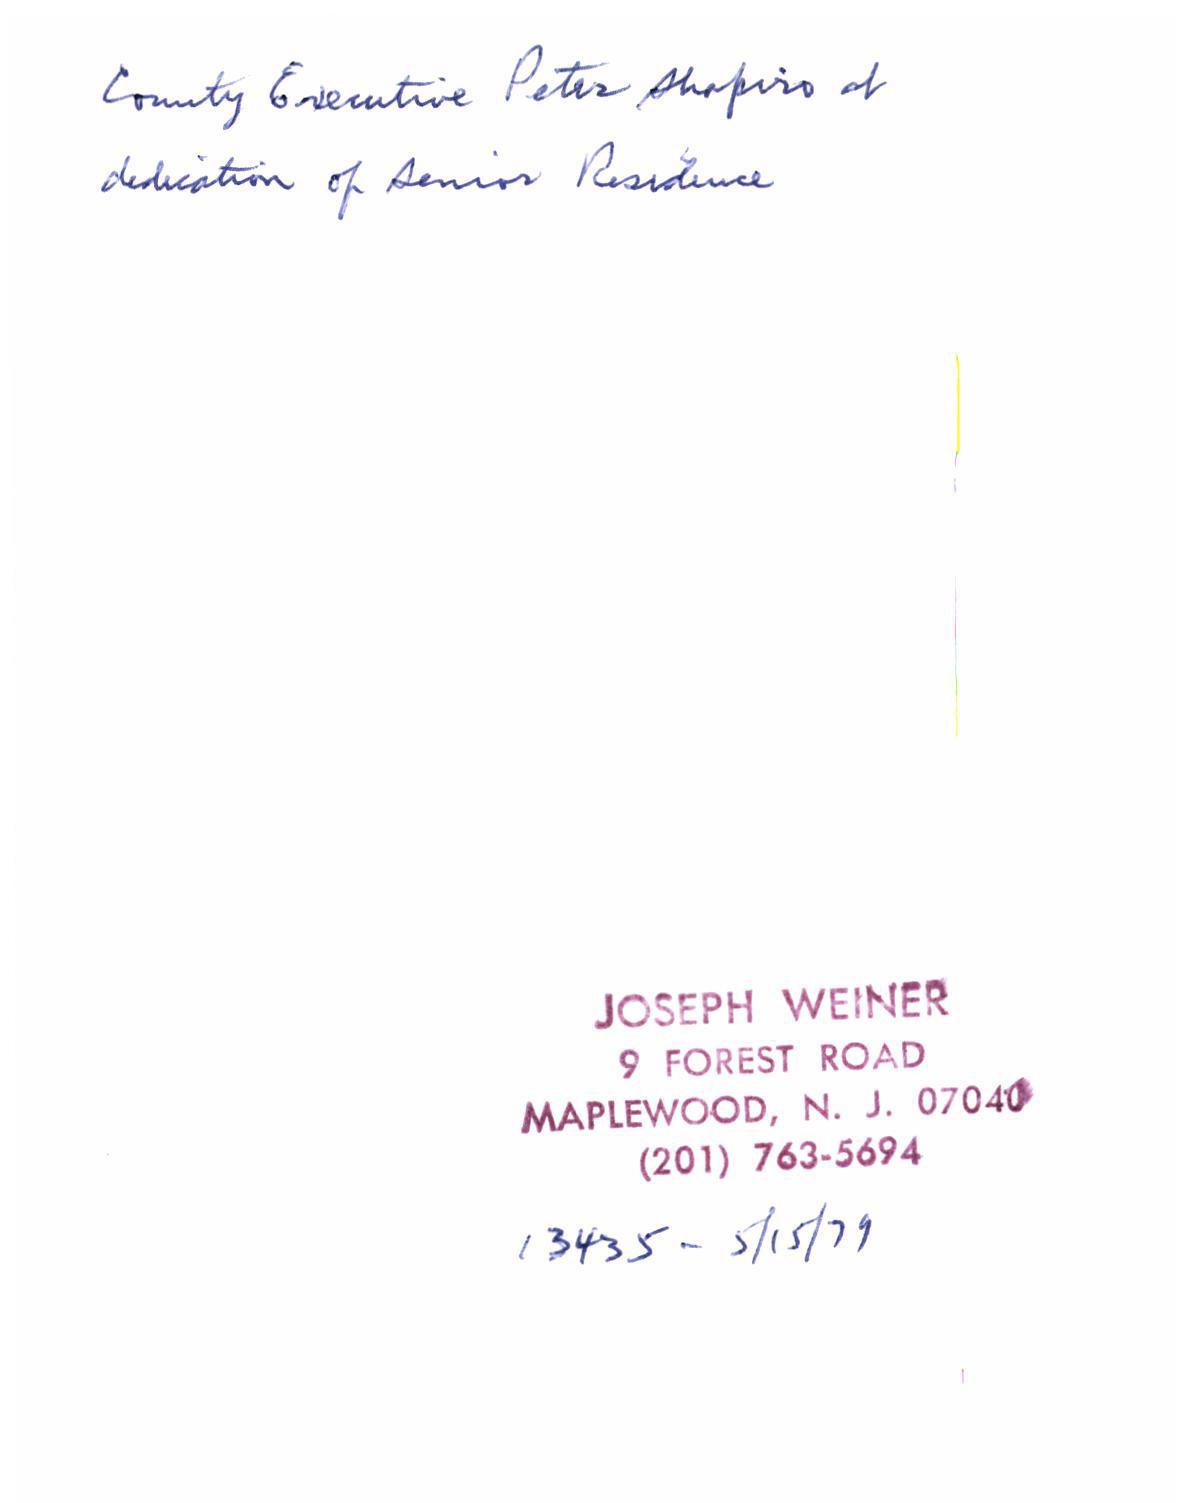 County Executive Peter Shapiro at
dedication of Senior Residence
JOSEPH WEINER
9 FOREST ROAD
MAPLEWOOD, N. J. 07040
(201) 763-5694
13435 - 5/15/79